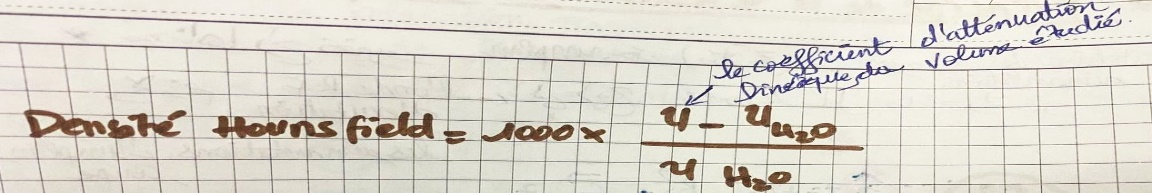 le coefficient d'atténuation
linéique du volume étudié.
Densité Hounsfield = 1000 x (μ - μH2O) / μ H2O